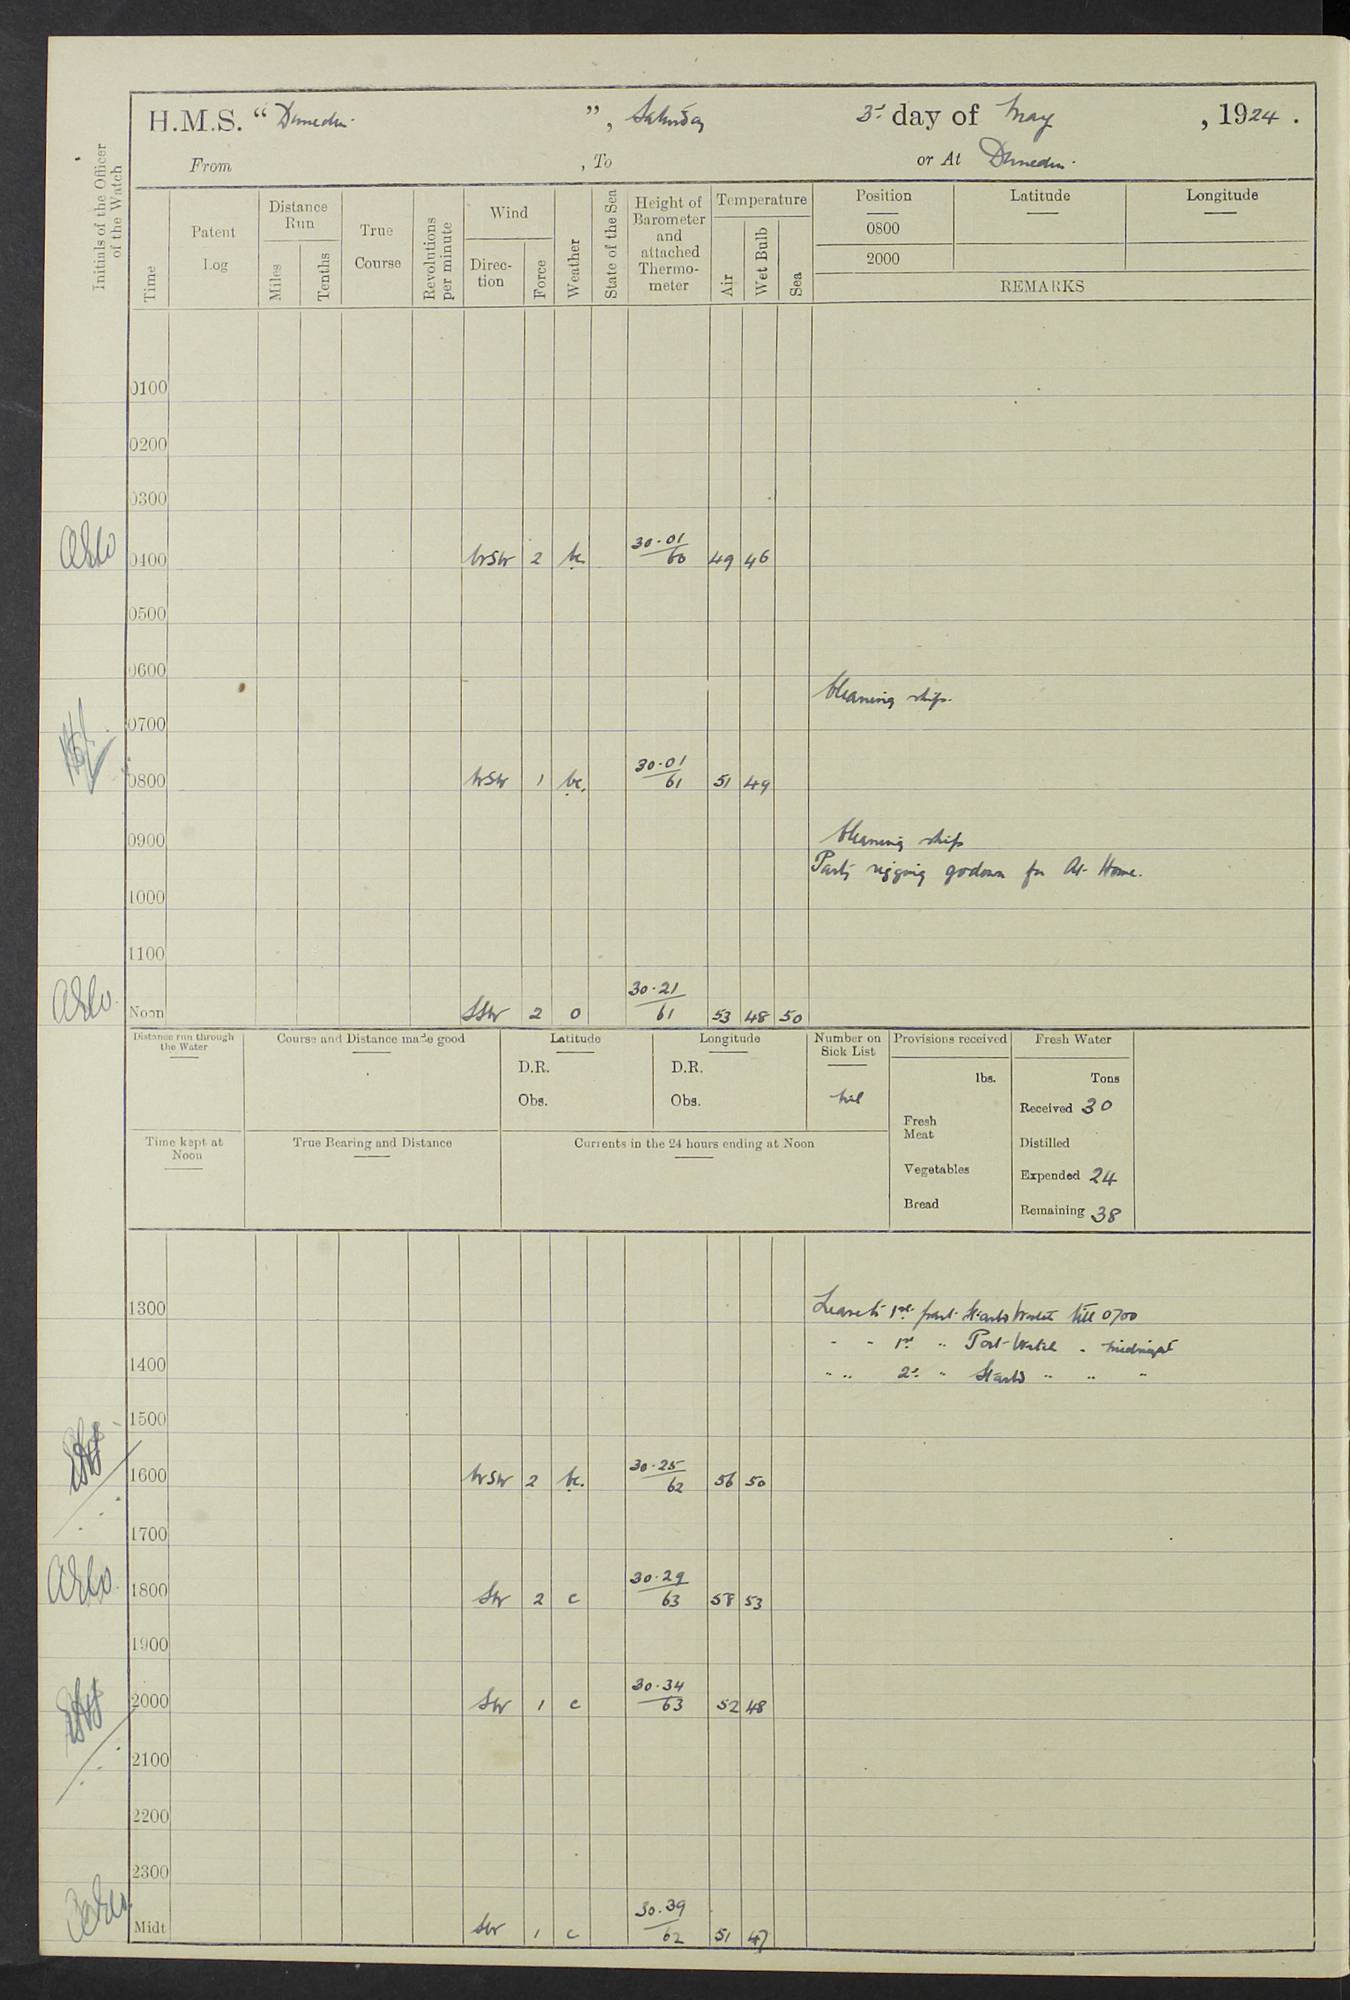 H.M.S. "Dunedin", Saturday 3rd day of May, 1924.
From , To or At Dunedin.
Initials of the Officer of the Watch
Time
Patent Log
Distance Run
Miles
Tenths
True Course
Revolutions per minute
Wind
Direc-tion
Force
Weather
State of the Sea
Height of Barometer and attached Thermo-meter
Temperature
Air
Wet Bulb
Sea
Position
Latitude
Longitude
0800
2000
REMARKS
0100
0200
0300
0400 WSW 2 bc 30.01/60 49 46
0500
0600
Cleaning ship.
0700
0800 WSW 1 bc. 30.01/61 51 49
0900 Cleaning ship
Party rigging godown for At Home.
1000
1100
Noon SSW 2 o 30.21/61 53 48 50
Distance run through the Water
Course and Distance made good
Latitude
D.R.
Obs.
Longitude
D.R.
Obs.
Number on Sick List
Nil
Provisions received
lbs.
Fresh Meat
Vegetables
Bread
Fresh Water
Tons
Received 30
Distilled
Expended 24
Remaining 38
Time kept at Noon
True Bearing and Distance
Currents in the 24 hours ending at Noon
1300 Leave to 1st part Starbd Watch till 0700
" " 1st " Port Watch " midnight
1400 " " 2nd " Starbd " " "
1500
1600 WSW 2 bc. 30.25/62 56 50
1700
1800 SW 2 c 30.29/63 58 53
1900
2000 SW 1 c 30.34/63 52 48
2100
2200
2300
Midt SW 1 c 30.39/62 51 47